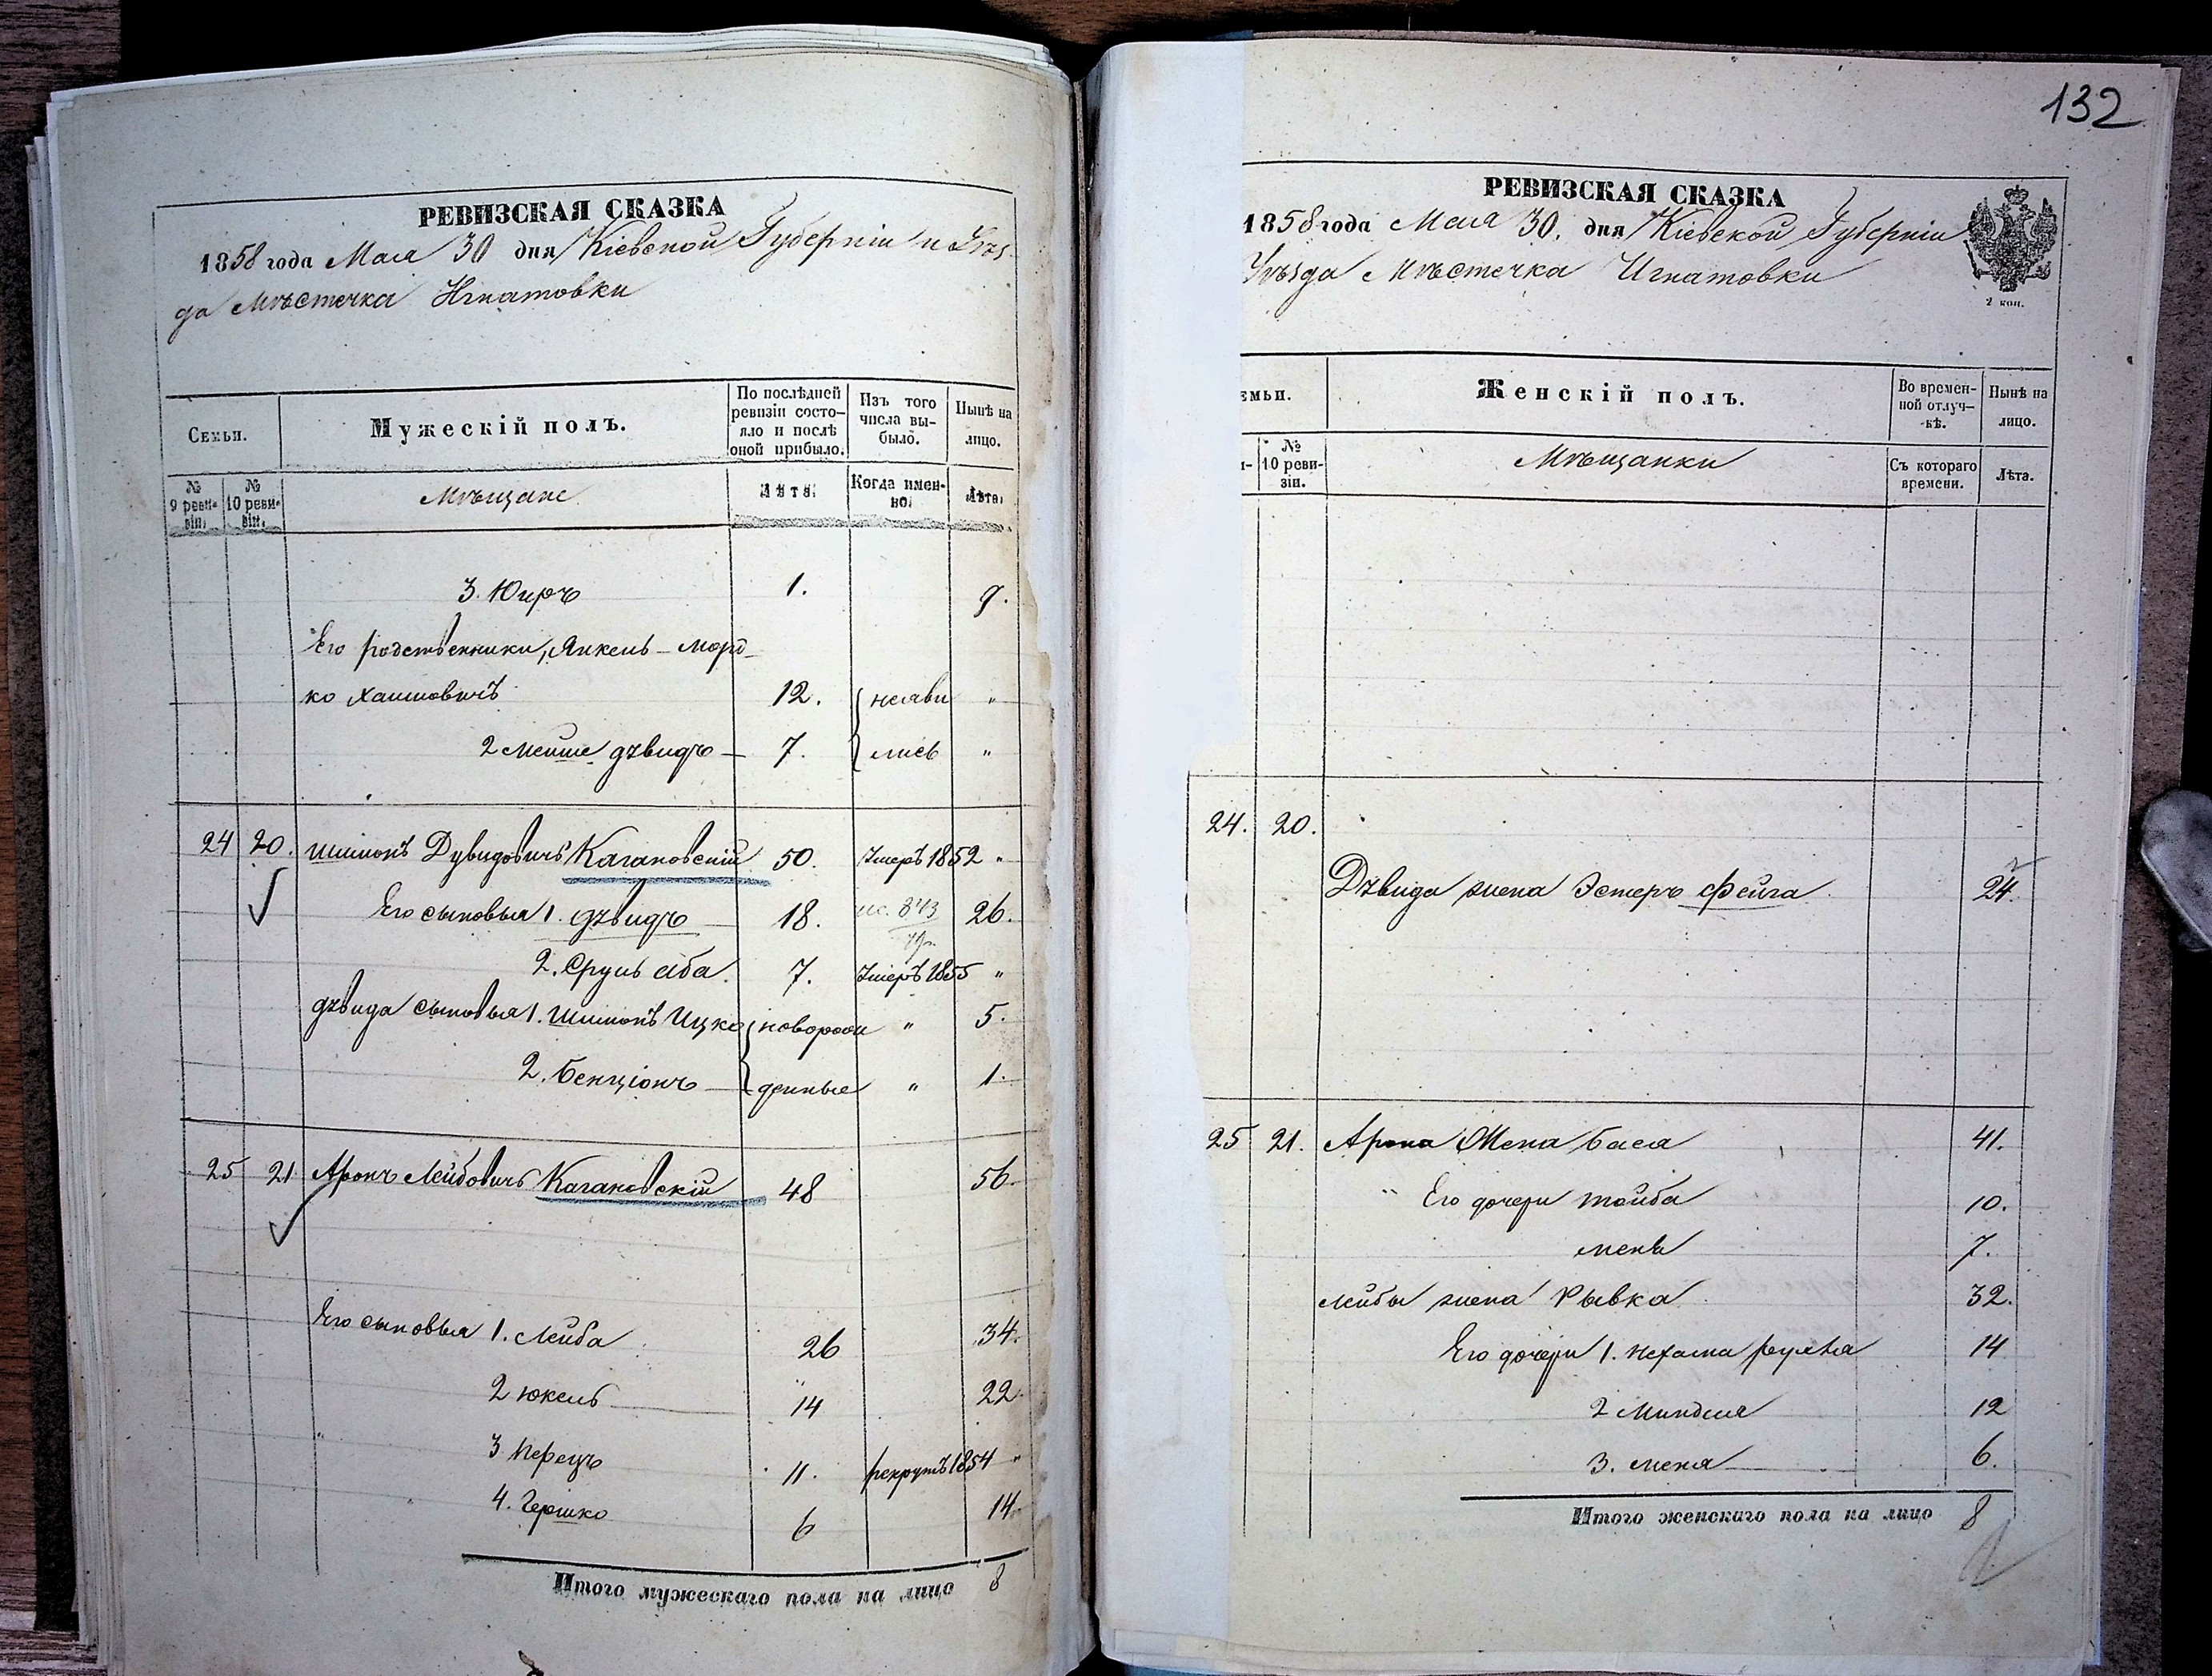 132
РЕВИЗСКАЯ СКАЗКА
1858 года Мая 30 дня Кіевской Губерніи и Уѣз-
да Мѣстечка Игнатовки
Семьи.
Мужескій полъ.
По послѣдней ревизіи состо-яло и послѣ оной прибыло.
Изъ того числа вы-было.
Нынѣ на лицо.
№ 9 реви-зіи.
№ 10 реви-зіи.
Мѣщане
Лѣта.
Когда имен-но.
Лѣта.
3. Юиръ 1. 9.
Его родственники, Янкель-Морд-
ко Хаимовичъ 12. неяви "
2 Мейше Дувидъ 7. лись "
24 20. Шимонъ Дувидовичъ Кагановскій 50. Умеръ 1852 "
Его сыновья 1. Дувидъ 18. 26.
2. Сруль Аба 7. Умеръ 1855 "
Дувида сыновья 1. Шимонъ Ицко новорож " 5.
2. Бенціонъ денные " 1.
25 21 Аронъ Лейбовичъ Кагановскій 48 56.
Его сыновья 1. Лейба 26 34.
2 Юкель 14 22
3 Перецъ 11. рекрутъ 1854 "
4. Гершко 6 14
Итого мужескаго пола на лицо 8
РЕВИЗСКАЯ СКАЗКА
1858 года Мая 30. дня Кіевской Губерніи
Уѣзда Мѣстечка Игнатовки
2 коп.
емьи.
Женскій полъ.
Во времен-ной отлуч-кѣ.
Нынѣ на лицо.
№ 10 реви-зіи.
Мѣщанки
Съ котораго времени.
Лѣта.
24. 20.
Дувида жена Эстеръ Фейга 24.
25 21. Арона Жена Бася 41.
" Его дочери Тойба 10.
Меня 7.
Лейбы жена Рывка 32.
Его дочери 1. Нехама 14
2 Миндля 12
3. Меня 6.
Итого женскаго пола на лицо 8